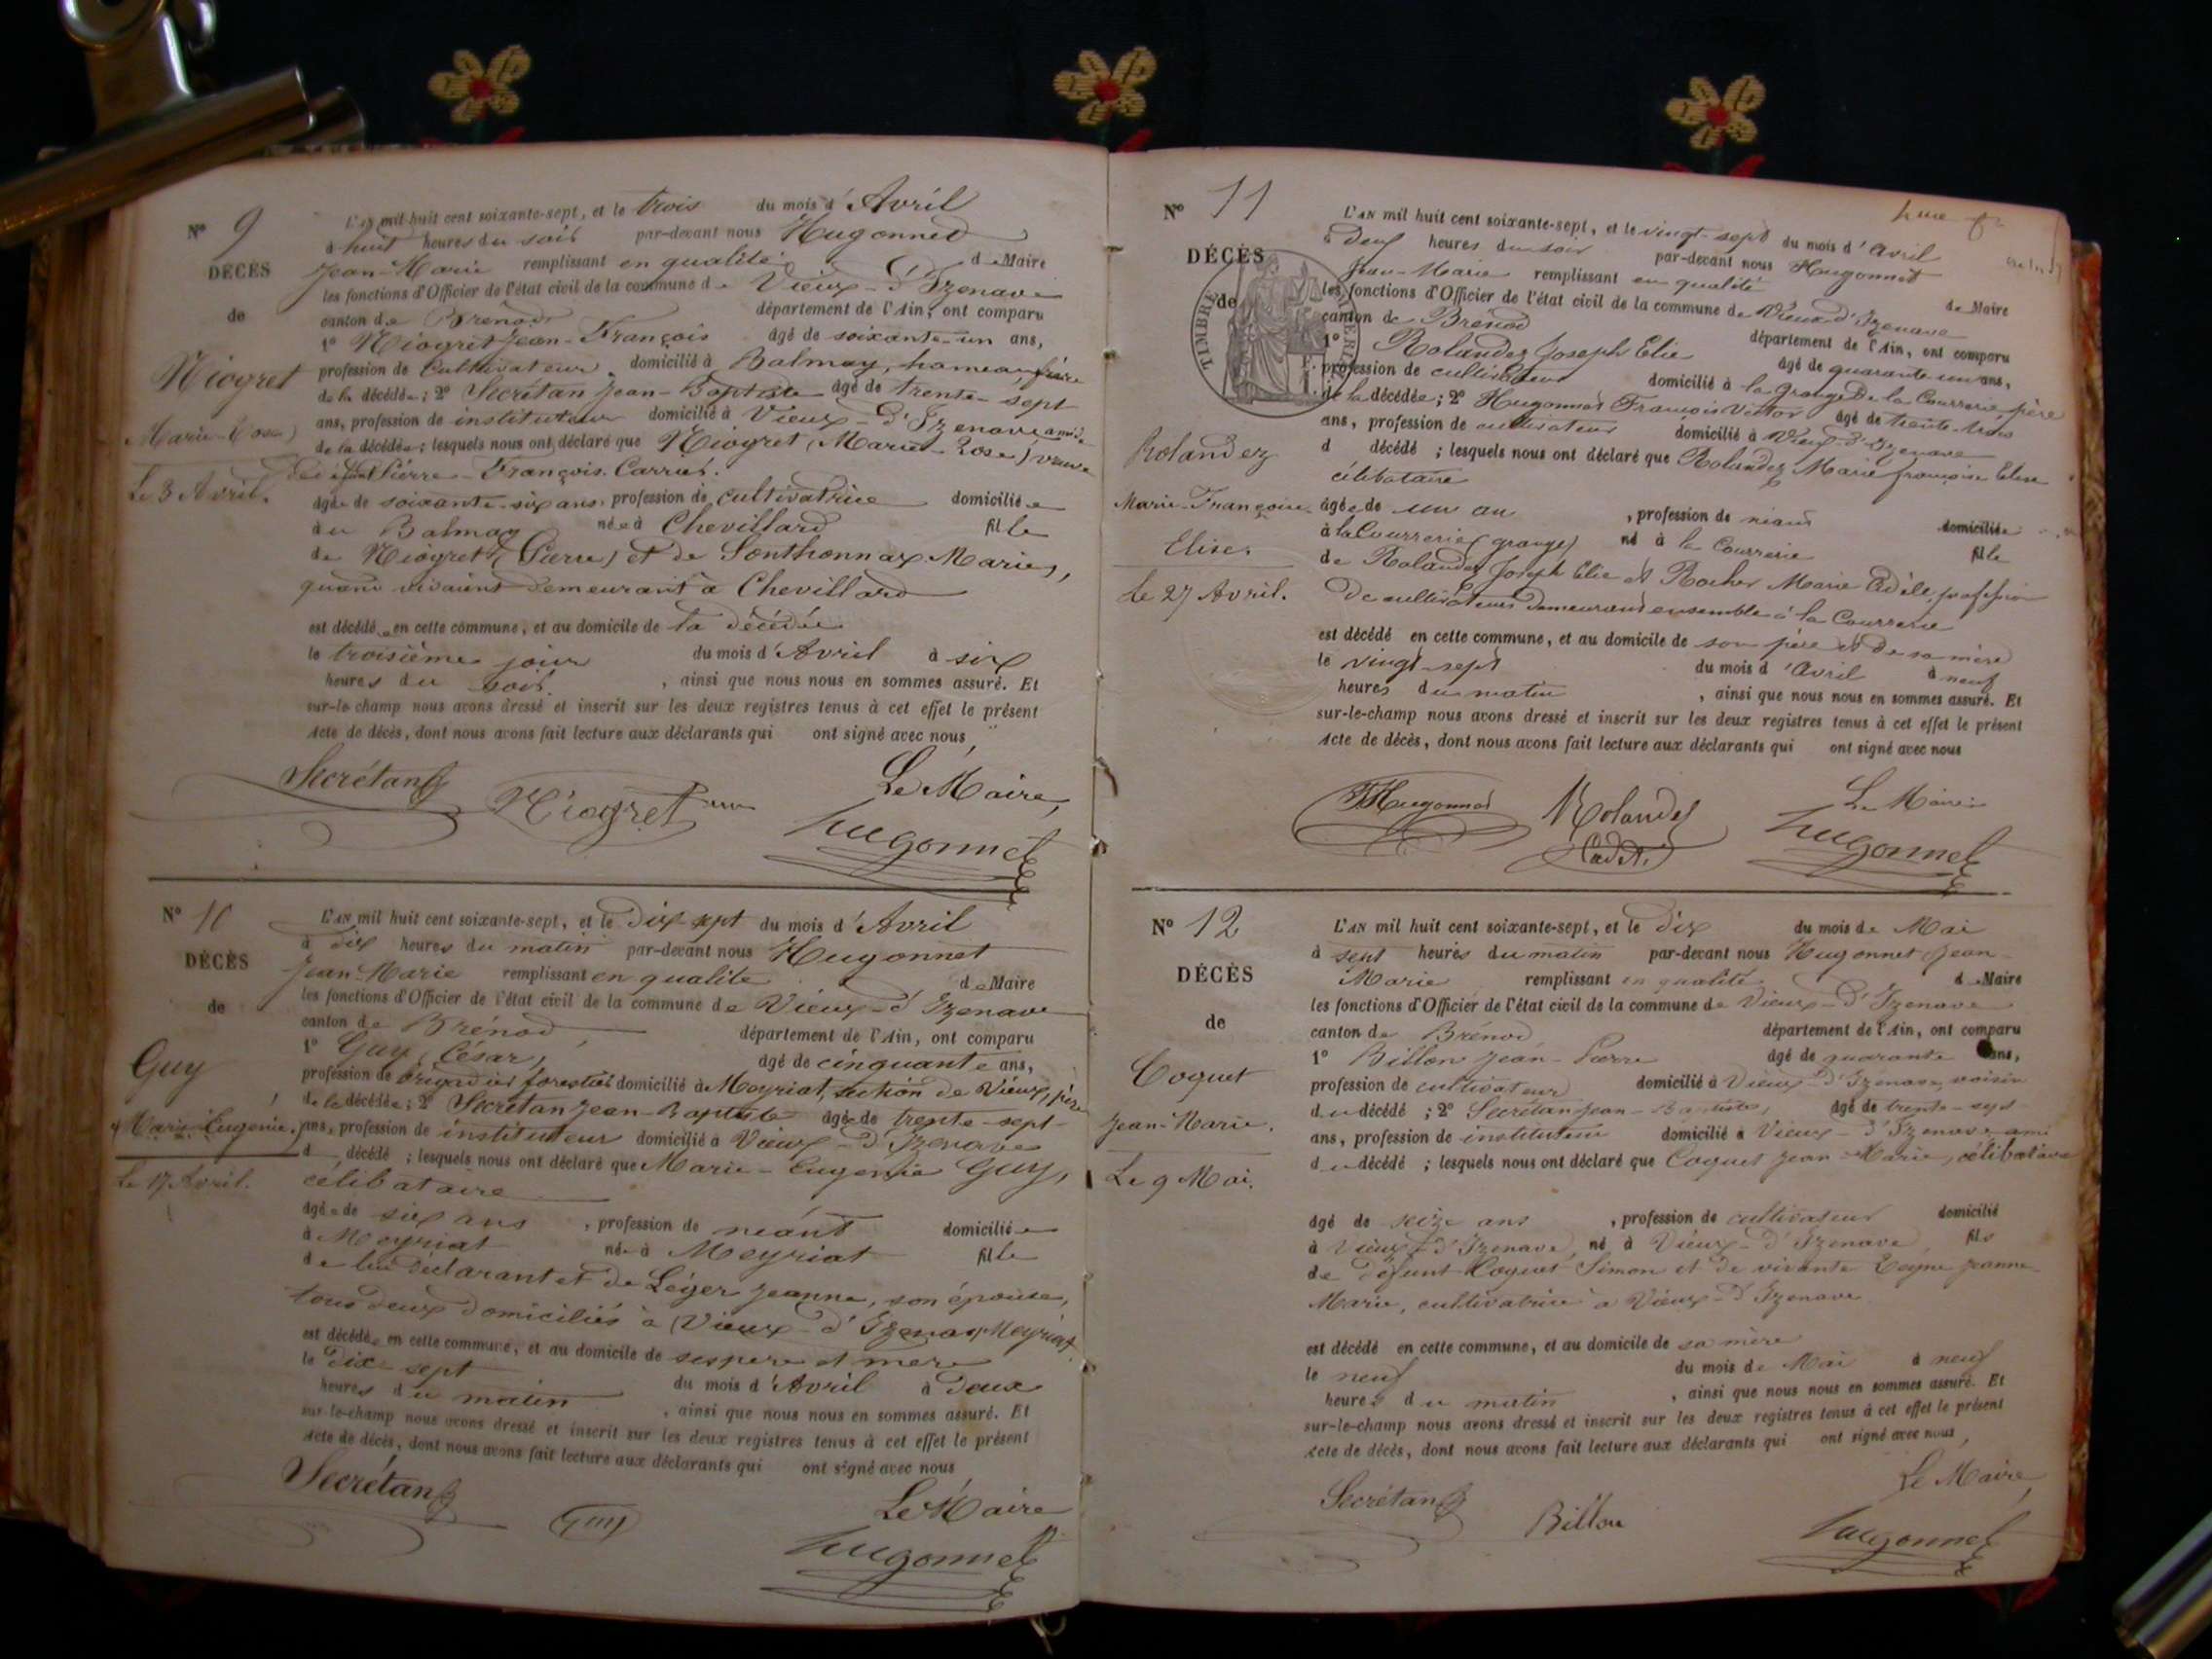 N° 9
DÉCÈS
de
Niogret
Marie-Rose
Le 3 Avril.
L'AN mil huit cent soixante-sept, et le trois du mois d'Avril
à huit heures du soir par-devant nous Hugonnet
Jean-Marie remplissant en qualité de Maire
les fonctions d'Officier de l'état civil de la commune de Vieux-d'Izenave
canton de Brénod département de l'Ain, ont comparu
1° Niogret Jean-François âgé de soixante-un ans,
profession de Cultivateur domicilié à Balmay, hameau, frère
de la décédée; 2° Secrétan Jean-Baptiste âgé de trente-sept
ans, profession de instituteur domicilié à Vieux-d'Izenave ami de
de la décédée; lesquels nous ont déclaré que Niogret (Marie-Rose) veuve
de Pierre-François Carrier.
âgée de soixante-six ans, profession de cultivatrice domiciliée
au Balmay née à Chevillard fille
de Niogret (Pierre) et de Sonthonnax Marie,
quand vivaient demeurant à Chevillard
est décédée en cette commune, et au domicile de la décédée
le troisième jour du mois d'Avril à six
heures du soir, ainsi que nous nous en sommes assuré. Et
sur-le-champ nous avons dressé et inscrit sur les deux registres tenus à cet effet le présent
Acte de décès, dont nous avons fait lecture aux déclarants qui ont signé avec nous,
Secrétan Niogret Le Maire,
Hugonnet
N° 10
DÉCÈS
de
Guy
Marie-Eugénie.
Le 17 Avril.
L'AN mil huit cent soixante-sept, et le Dix sept du mois d'Avril
à dix heures du matin par-devant nous Hugonnet
Jean-Marie remplissant en qualité de Maire
les fonctions d'Officier de l'état civil de la commune de Vieux-d'Izenave
canton de Brénod département de l'Ain, ont comparu
1° Guy, César, âgé de cinquante ans,
profession de brigadier forestier domicilié à Meyriat, section de Vieux, père
de la décédée; 2° Secrétan Jean-Baptiste âgé de trente-sept
ans, profession de instituteur domicilié à Vieux-d'Izenave
d décédé ; lesquels nous ont déclaré que Marie-Eugénie Guy,
célibataire
âgée de six ans, profession de néant domiciliée
à Meyriat née à Meyriat fille
de lui déclarant et de Léger Jeanne, son épouse,
tous deux domiciliés à Vieux-d'Izenave, Meyriat.
est décédée en cette commune, et au domicile de ses père et mère
le Dix sept du mois d'Avril à deux
heures du matin, ainsi que nous nous en sommes assuré. Et
sur-le-champ nous avons dressé et inscrit sur les deux registres tenus à cet effet le présent
Acte de décès, dont nous avons fait lecture aux déclarants qui ont signé avec nous
Secrétan Guy Le Maire
Hugonnet
N° 11
DÉCÈS
de
TIMBRE
Rolandez
Marie-Françoise
Elise.
Le 27 Avril.
L'AN mil huit cent soixante-sept, et le vingt-sept du mois d'avril
à Deux heures du soir par-devant nous Hugonnet
Jean-Marie remplissant en qualité de Maire
les fonctions d'Officier de l'état civil de la commune de Vieux d'Izenave
canton de Brénod département de l'Ain, ont comparu
1° Rolandez Joseph Elie âgé de quarante un ans,
profession de cultivateur domicilié à la grange De la Courrerie père
de la décédée; 2° Hugonnet François Victor âgé de trente-trois
ans, profession de cultivateur domicilié à Vieux-d'Izenave
d décédé ; lesquels nous ont déclaré que Rolandez Marie françoise Elise
célibataire
âgée de un an, profession de néant domiciliée
à la Courrerie (grange) né à la Courrerie fille
de Rolandez Joseph Elie et Rocher Marie Adèle, profession
De cultivateurs demeurant ensemble à la Courrerie
est décédé en cette commune, et au domicile de son père et de sa mère
le vingt-sept du mois d'avril à neuf
heures du matin, ainsi que nous nous en sommes assuré. Et
sur-le-champ nous avons dressé et inscrit sur les deux registres tenus à cet effet le présent
Acte de décès, dont nous avons fait lecture aux déclarants qui ont signé avec nous
Hugonnet Rolandez Cadet Le Maire
Hugonnet
N° 12
DÉCÈS
de
Coquet
Jean-Marie.
Le 9 Mai.
L'AN mil huit cent soixante-sept, et le dix du mois de Mai
à sept heures du matin par-devant nous Hugonnet Jean-
Marie remplissant en qualité de Maire
les fonctions d'Officier de l'état civil de la commune de Vieux-d'Izenave
canton de Brénod département de l'Ain, ont comparu
1° Billon Jean-Pierre âgé de quarante ans,
profession de cultivateur domicilié à Vieux-d'Izenave, voisin
du décédé ; 2° Secrétan Jean-Baptiste, âgé de trente-sept
ans, profession de instituteur domicilié à Vieux-d'Izenave, ami
du décédé ; lesquels nous ont déclaré que Coquet Jean-Marie, célibataire
âgé de seize ans, profession de cultivateur domicilié
à Vieux-d'Izenave, né à Vieux-d'Izenave, fils
de défunt Coquet Simon et de vivante Jeanne
Marie, cultivatrice à Vieux-d'Izenave
est décédé en cette commune, et au domicile de sa mère
le neuf du mois de Mai à neuf
heures du matin, ainsi que nous nous en sommes assuré. Et
sur-le-champ nous avons dressé et inscrit sur les deux registres tenus à cet effet le présent
Acte de décès, dont nous avons fait lecture aux déclarants qui ont signé avec nous,
Secrétan Billon Le Maire,
Hugonnet